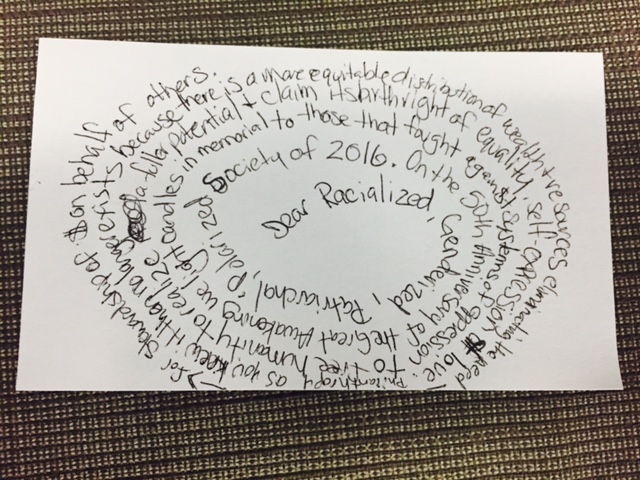 Dear Racialized, Genderized, Patriarchal, Polarized
Society of 2016. On the 50th Anniversary of the Great Awakening we light
candles in memorial to those that fought against systems of oppression to free humanity to realize
a fuller potential + claim its birthright of equality, self-expression & love. Philanthropy as you knew it no longer exists
because there is a more equitable distribution of wealth + resources eliminating the need for stewardship of $ on behalf of others.